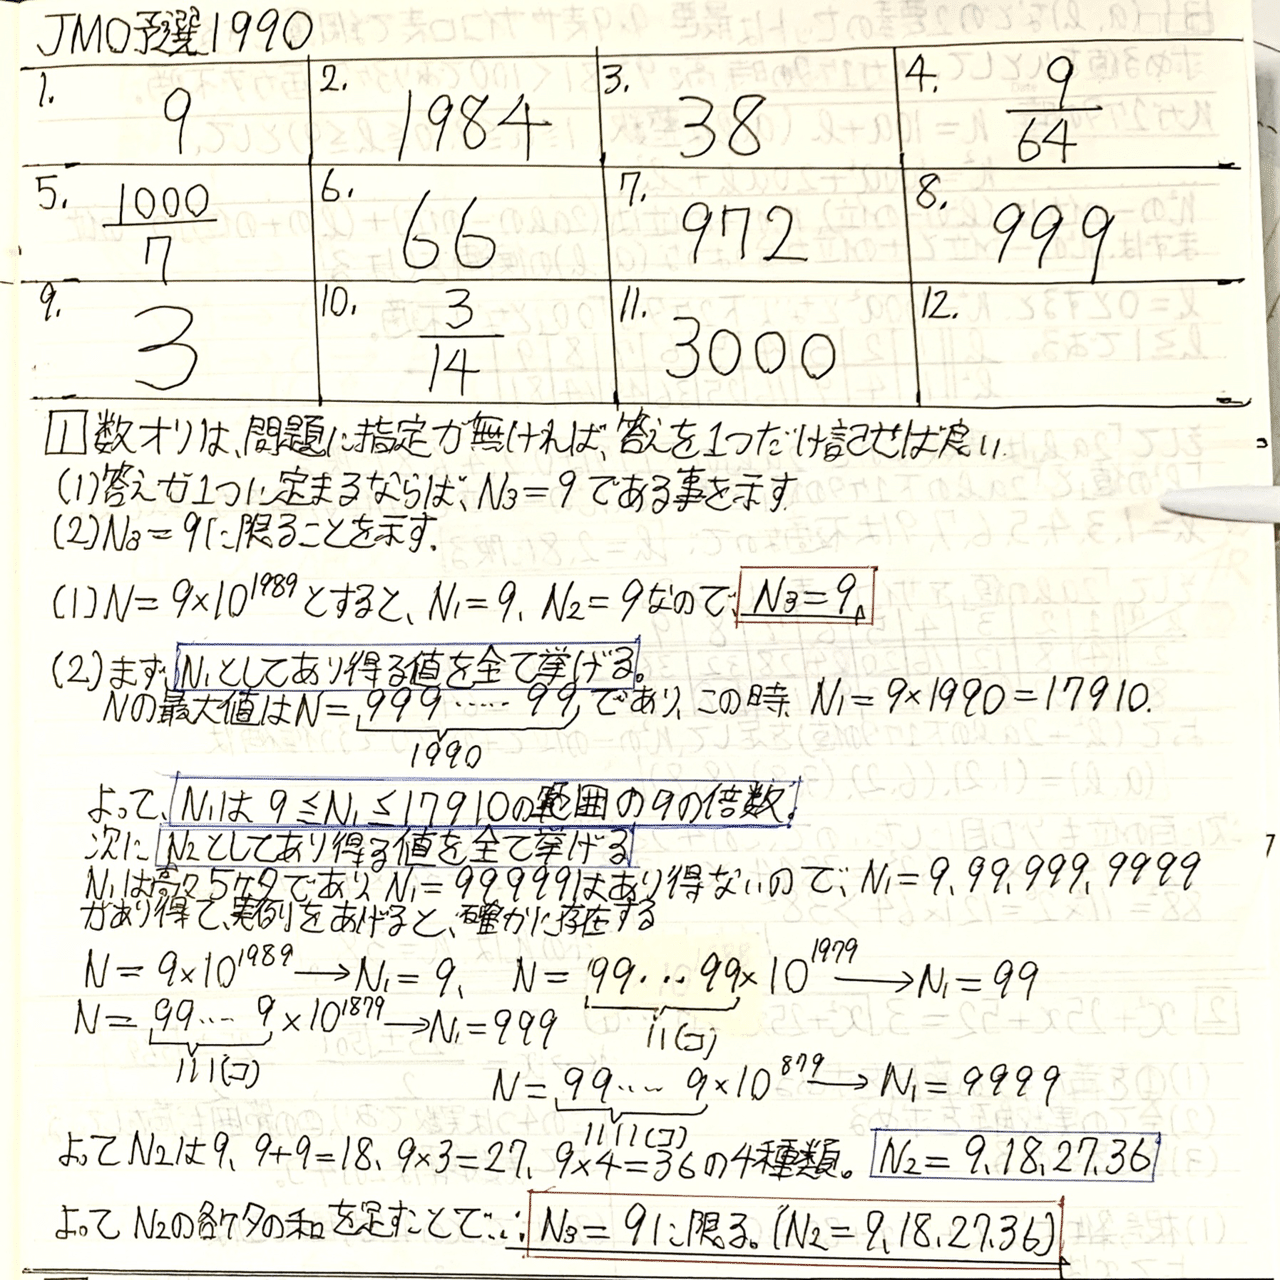 JMO予選1990
1. 9
2. 1984
3. 38
4. 9/64
5. 1000/7
6. 66
7. 972
8. 999
9. 3
10. 3/14
11. 3000
12.
1 数オリは、問題に指定が無ければ、答えを1つだけ記せば良い.
(1)答えが1つに定まるならば、N₃=9である事を示す.
(2)N₃=9に限ることを示す.
(1)N=9×10¹⁹⁸⁹とすると、N₁=9、N₂=9なので、N₃=9。
(2)まず、N₁としてあり得る値を全て挙げる。
Nの最大値はN=999·····99であり、この時、N₁=9×1990=17910.
1990
よって、N₁は 9≦N₁≦17910の範囲の9の倍数.
次に N₂としてあり得る値を全て挙げる
N₁は高々5ケタであり、N₁=99999はあり得ないので、N₁=9、99、999、9999
があり得て、実例をあげると、確かに存在する
N=9×10¹⁹⁸⁹→N₁=9、 N=99···99×10¹⁹⁷⁹→N₁=99
11(コ)
N=99···9×10¹⁸⁷⁹→N₁=999
111(コ)
N=99···9×10⁸⁷⁹→N₁=9999
1111(コ)
よってN₂は9、9+9=18、9×3=27、9×4=36の4種類。 N₂=9、18、27、36
よって N₂の各ケタの和を足すことで∴ N₃=9に限る。(N₂=9、18、27、36)